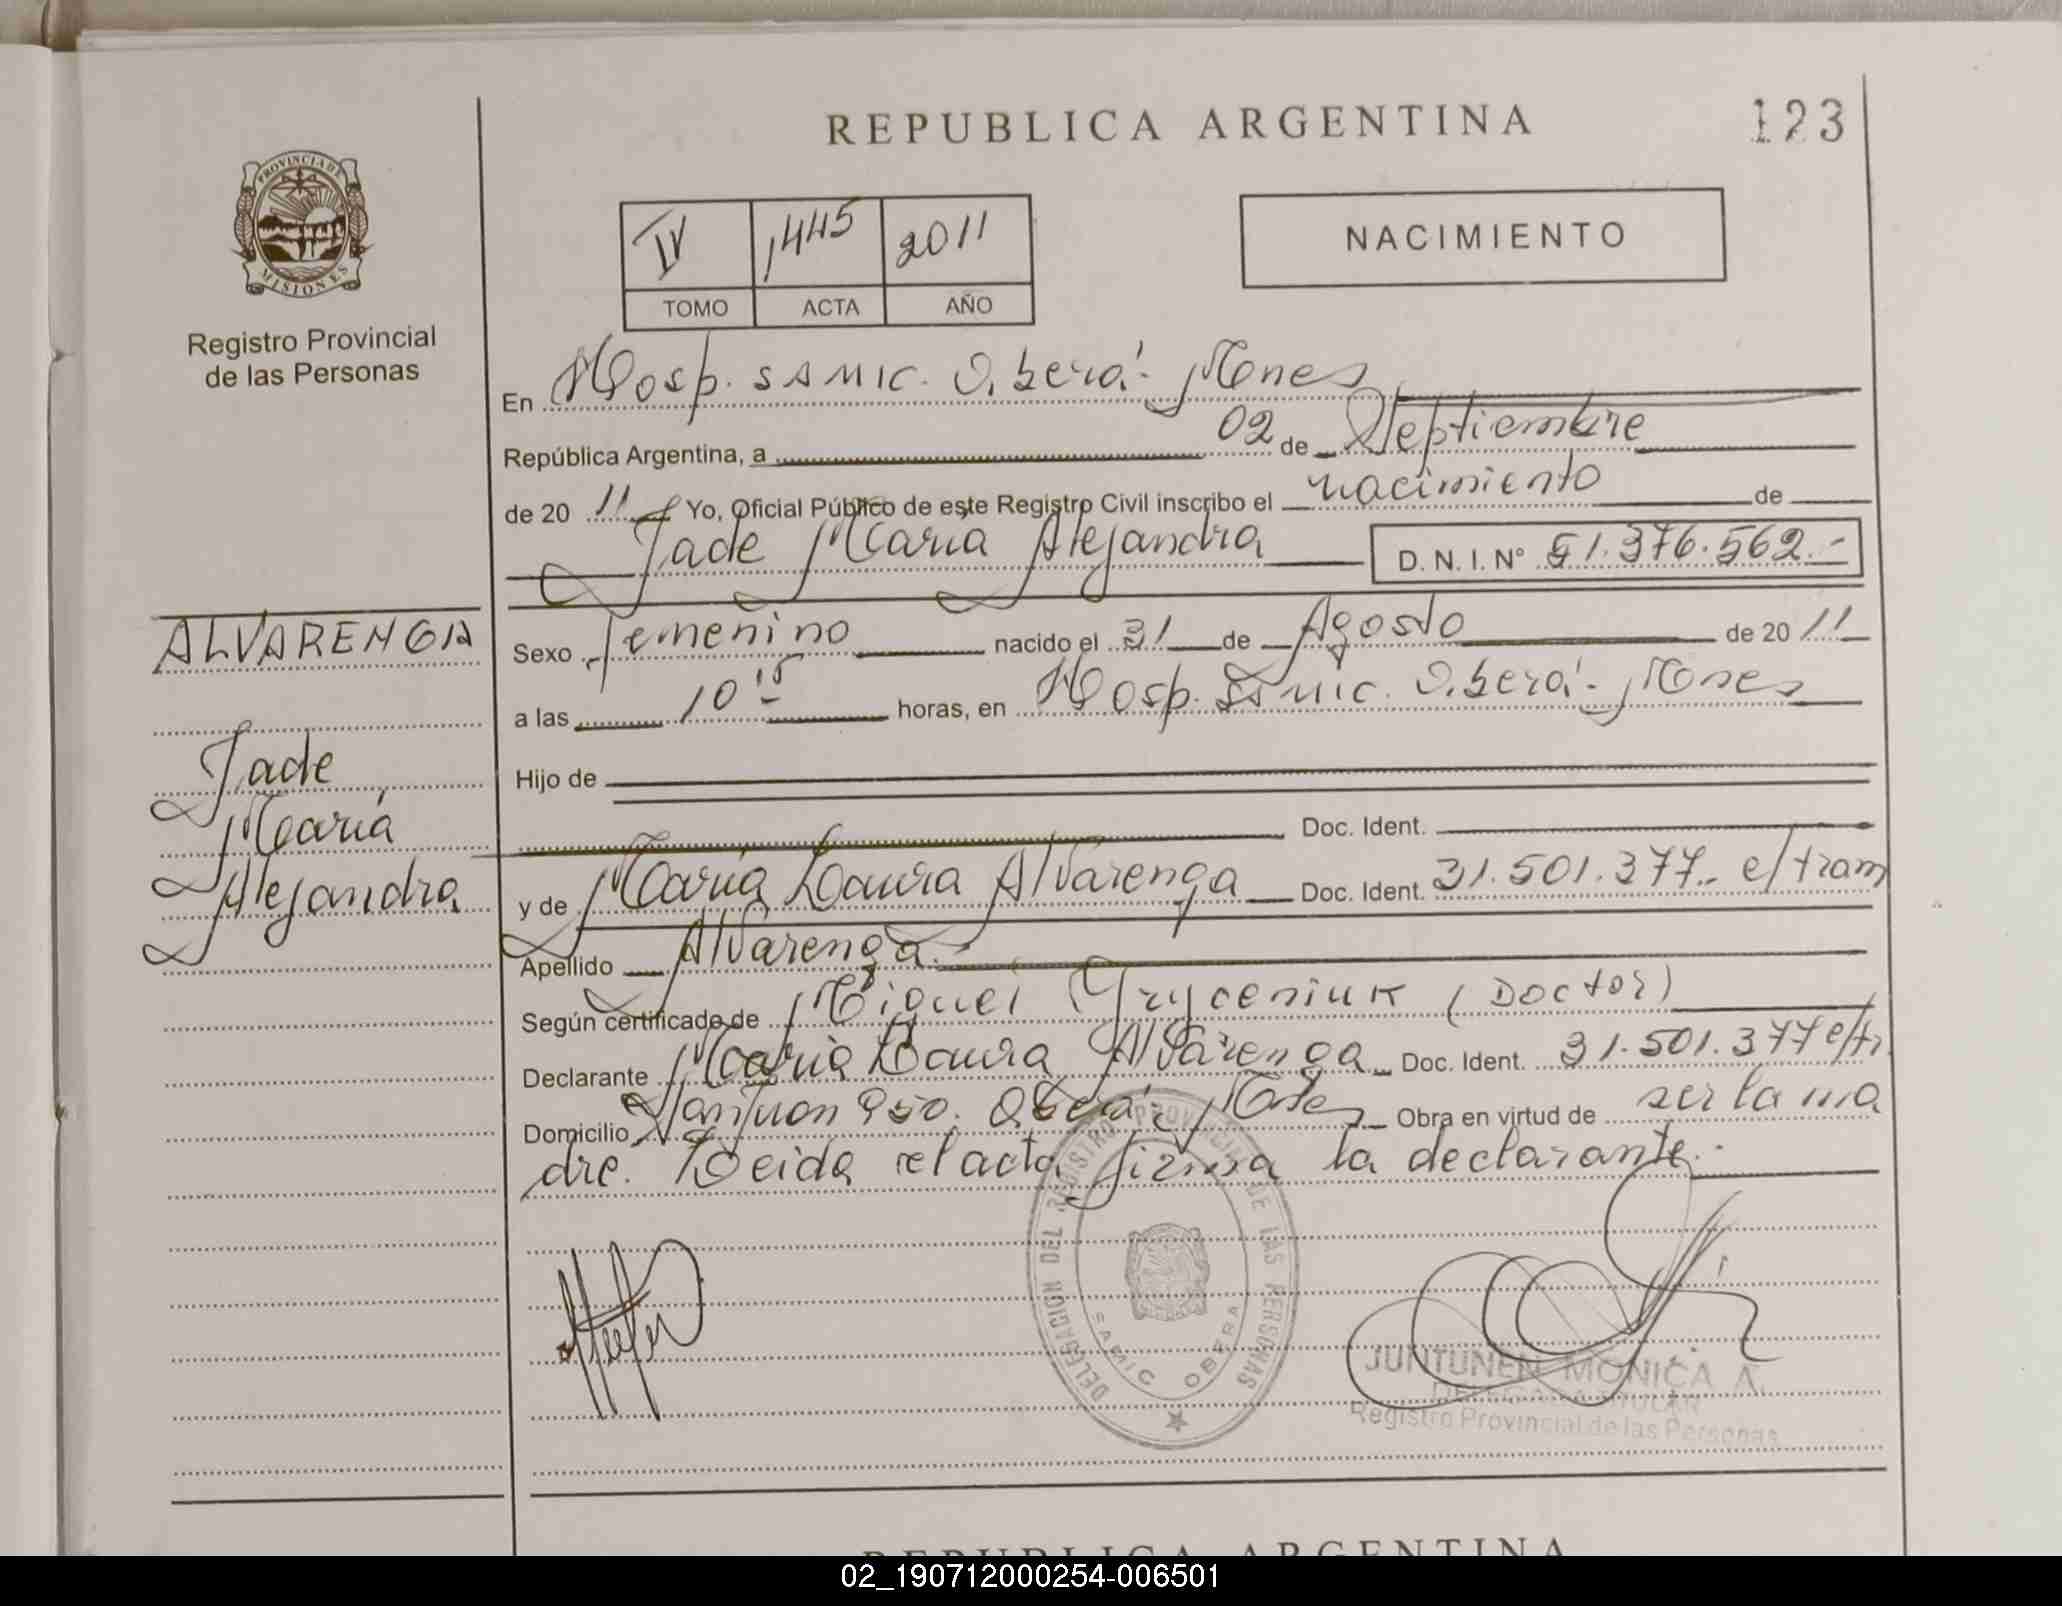 REPUBLICA ARGENTINA
123
PROVINCIA DE
MISIONES
Registro Provincial
de las Personas
IV 1445 2011
TOMO ACTA AÑO
NACIMIENTO
En Hosp. SAMIC. Oberá - Mnes
República Argentina, a 02 de Septiembre
de 20 11 Yo, Oficial Público de este Registro Civil inscribo el nacimiento de
Jade María Alejandra D. N. I. N° 51.376.562.-
ALVARENGA
Jade
María
Alejandra
Sexo femenino nacido el 31 de Agosto de 20 11
a las 10 15 horas, en Hosp. SAMIC. Oberá - Mnes
Hijo de
Doc. Ident.
y de María Laura Alvarenga Doc. Ident. 31.501.377.- e/tram
Apellido Alvarenga.-
Según certificado de Miguel Gryceniuk (Doctor)
Declarante María Laura Alvarenga Doc. Ident. 31.501.377 e/tr.
Domicilio 950. Oberá - Obra en virtud de ser la ma
dre. Leida el acta firma la declarante.-
DELEGACION DEL REGISTRO PROVINCIAL DE LAS PERSONAS
SAMIC OBERA
JUNTUNEN MONICA A.
DELEGADA TITULAR
Registro Provincial de las Personas
REPUBLICA ARGENTINA
02_190712000254-006501